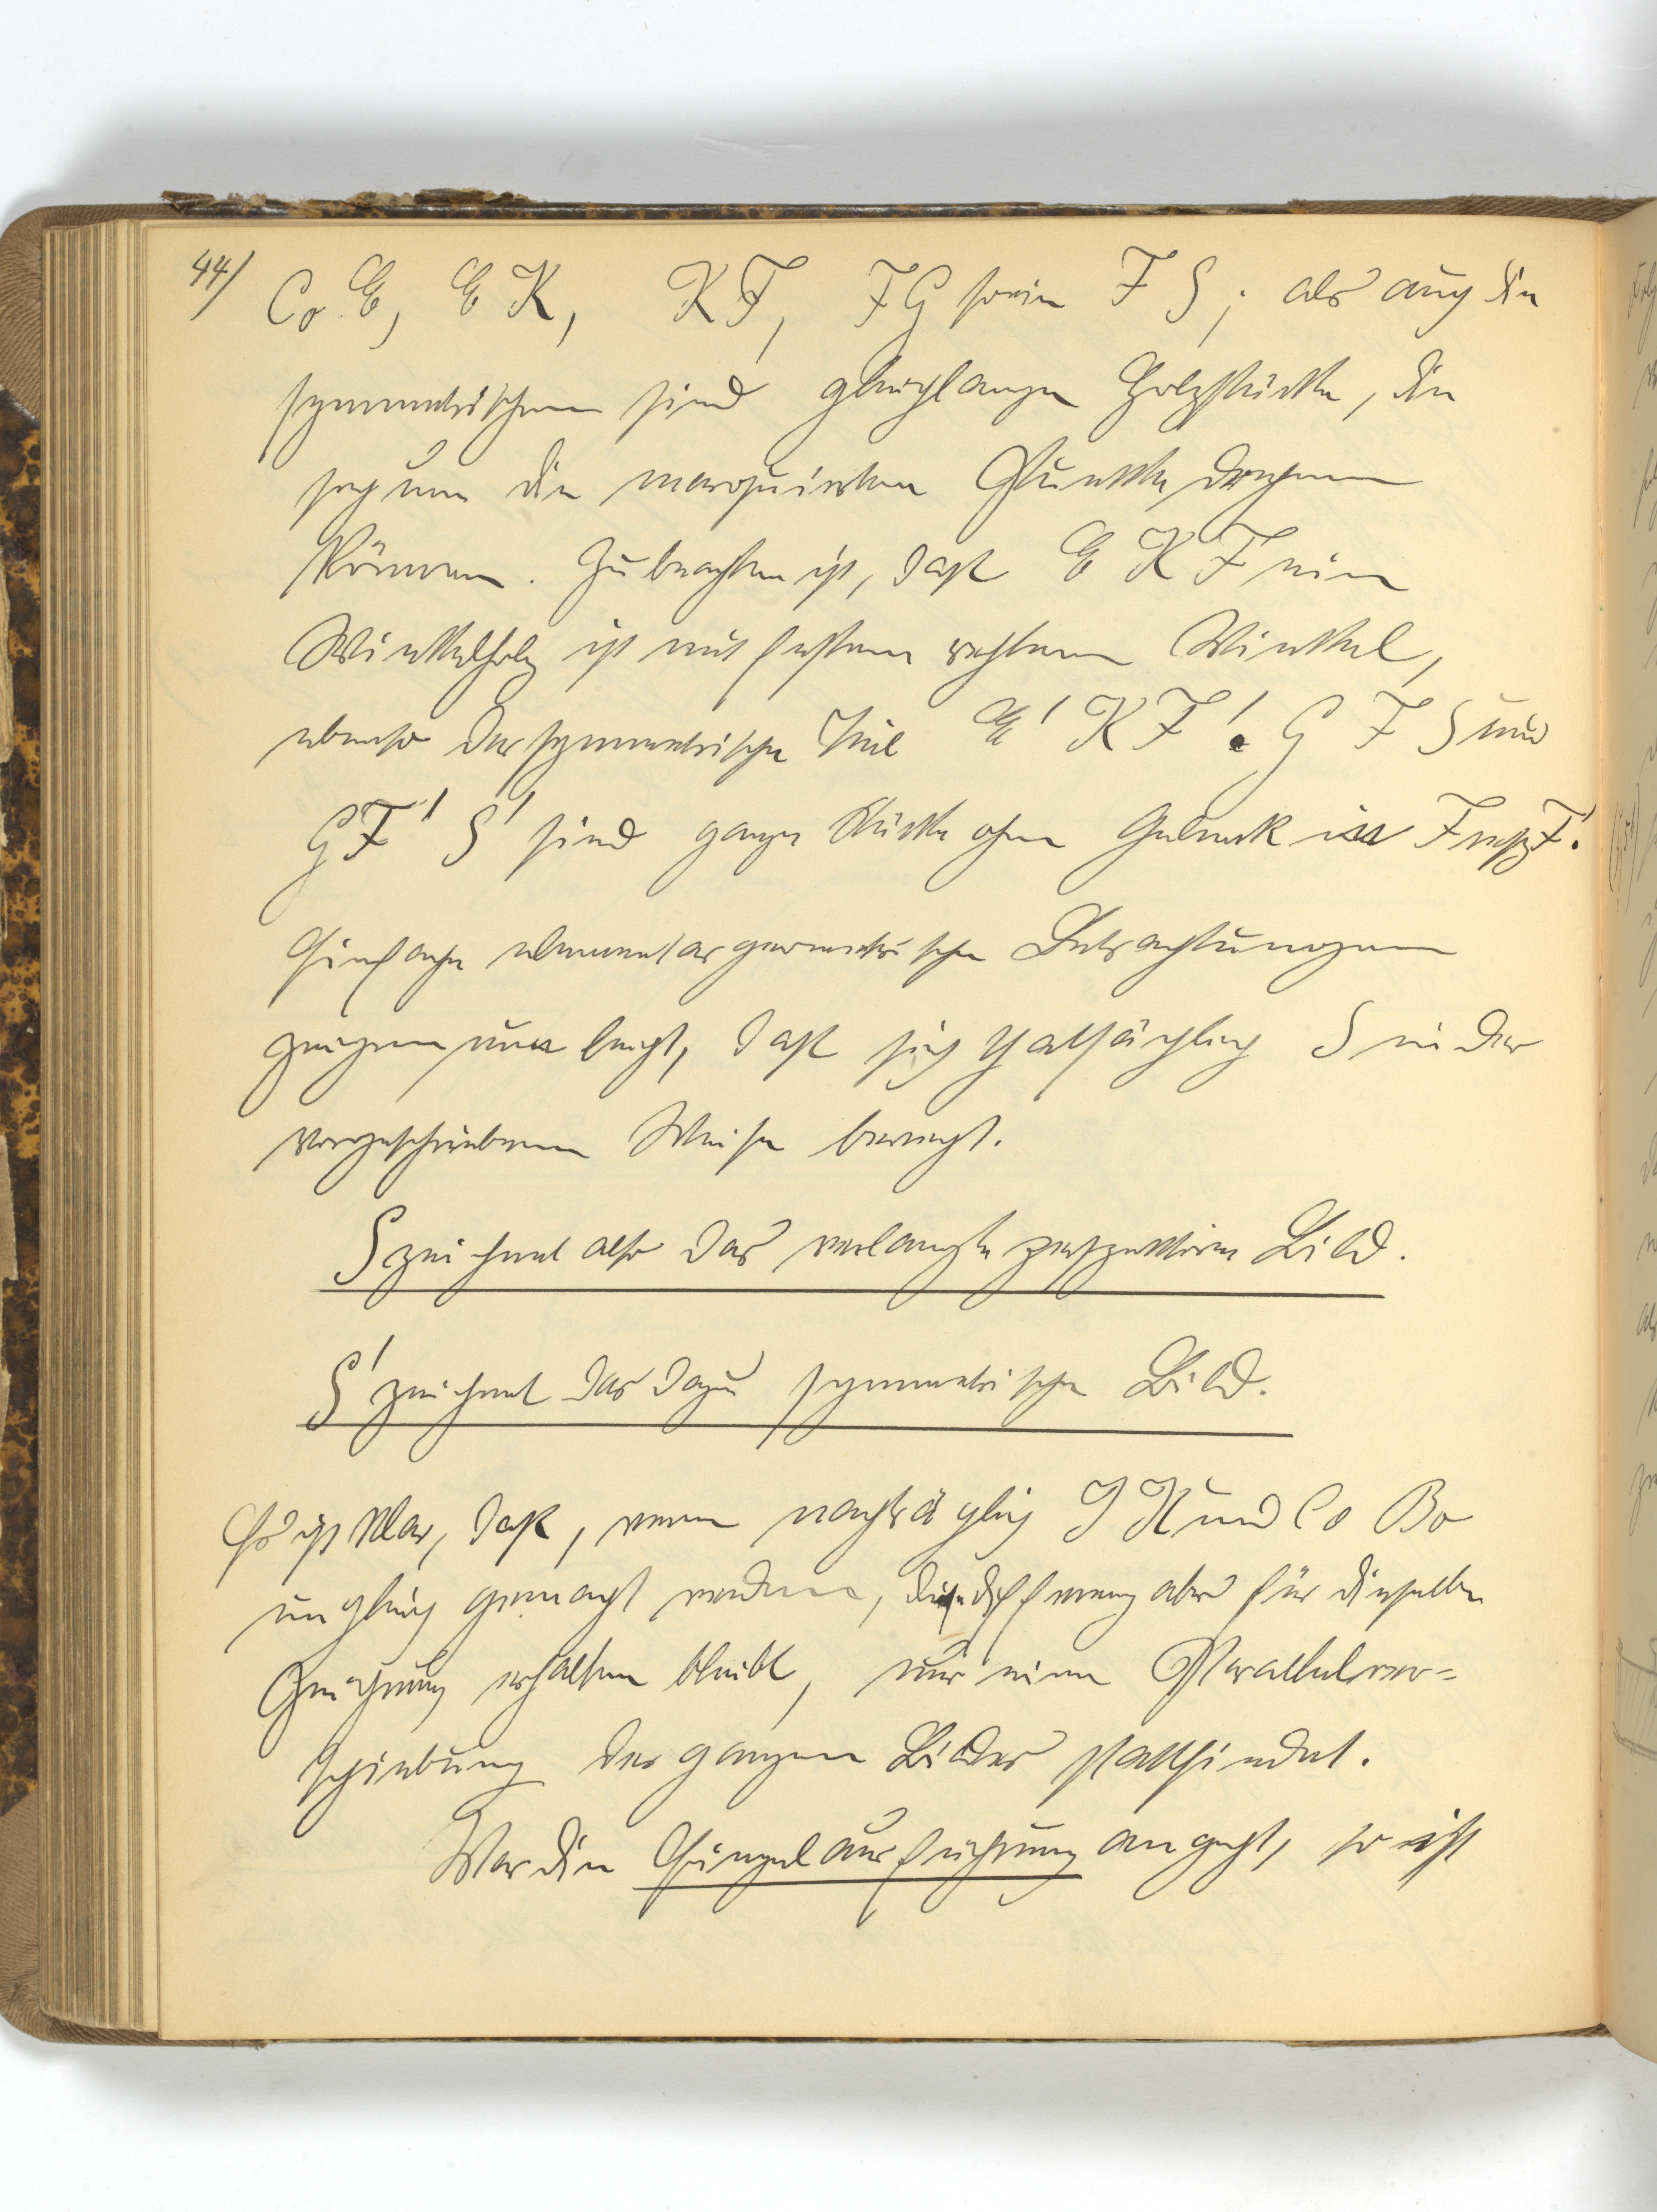 44/ Co E, E K, K F, F G sowie F S, als auch die
symmetrischen sind gleichlange Holzstücke, die
sich um die marquirten Punkte drehen
können. Zu beachten ist, daß E K F ein
Winkelholz ist mit festem rechtem Winkel,
ebenso der symmetrische Teil E' K F'. G F S und
G F' S' sind ganze Stücke ohne Gelenk in F resp F'.
Einfache elementargeometrische Betrachtungen
zeigen nun leicht, daß sich thatsächlich S in der
vorgeschriebenen Weise bewegt.
S zeichnet also das verlangte perspektive Bild.
S' zeichnet das dazu symmetrische Bild.
Es ist klar, daß, wenn nachträglich J K und Co Bo
ungleich gemacht werden, die Differenz aber für dieselbe
Zeichnung erhalten bleibt, nur eine Parallelver=
schiebung des ganzen Bildes stattfindet.
Was die Einzelausführung angeht, so ist